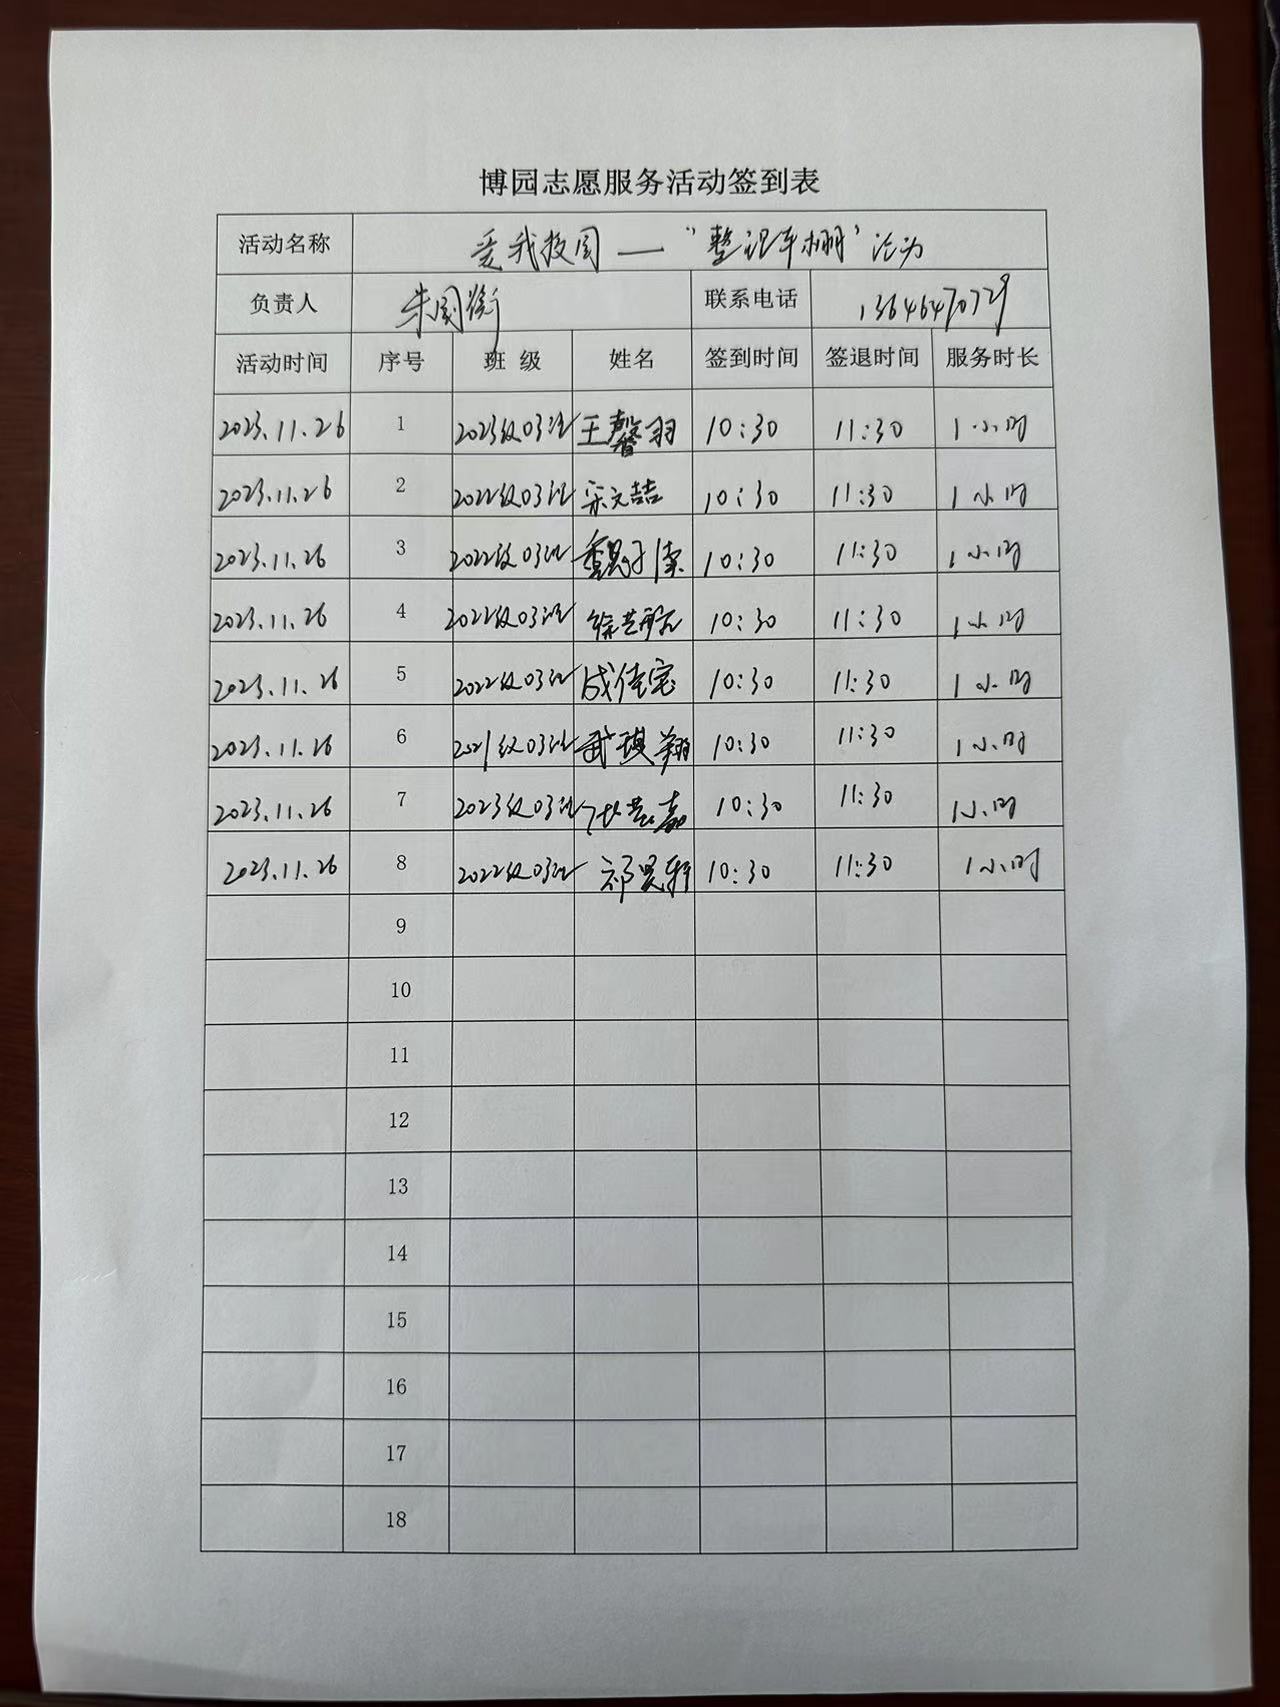 博园志愿服务活动签到表
活动名称 爱我校园——“整理车棚”活动
负责人 朱国衡 联系电话 13646470729
活动时间 序号 班 级 姓名 签到时间 签退时间 服务时长
2023.11.26 1 2023级03班 王馨羽 10:30 11:30 1小时
2023.11.26 2 2022级03班 宋文喆 10:30 11:30 1小时
2023.11.26 3 2022级03班 10:30 11:30 1小时
2023.11.26 4 2022级03班 10:30 11:30 1小时
2023.11.26 5 2022级03班 成佳宝 10:30 11:30 1小时
2023.11.26 6 2021级03班 武琪翔 10:30 11:30 1小时
2023.11.26 7 2023级03班 10:30 11:30 1小时
2023.11.26 8 2022级03班 祁昊轩 10:30 11:30 1小时
9
10
11
12
13
14
15
16
17
18